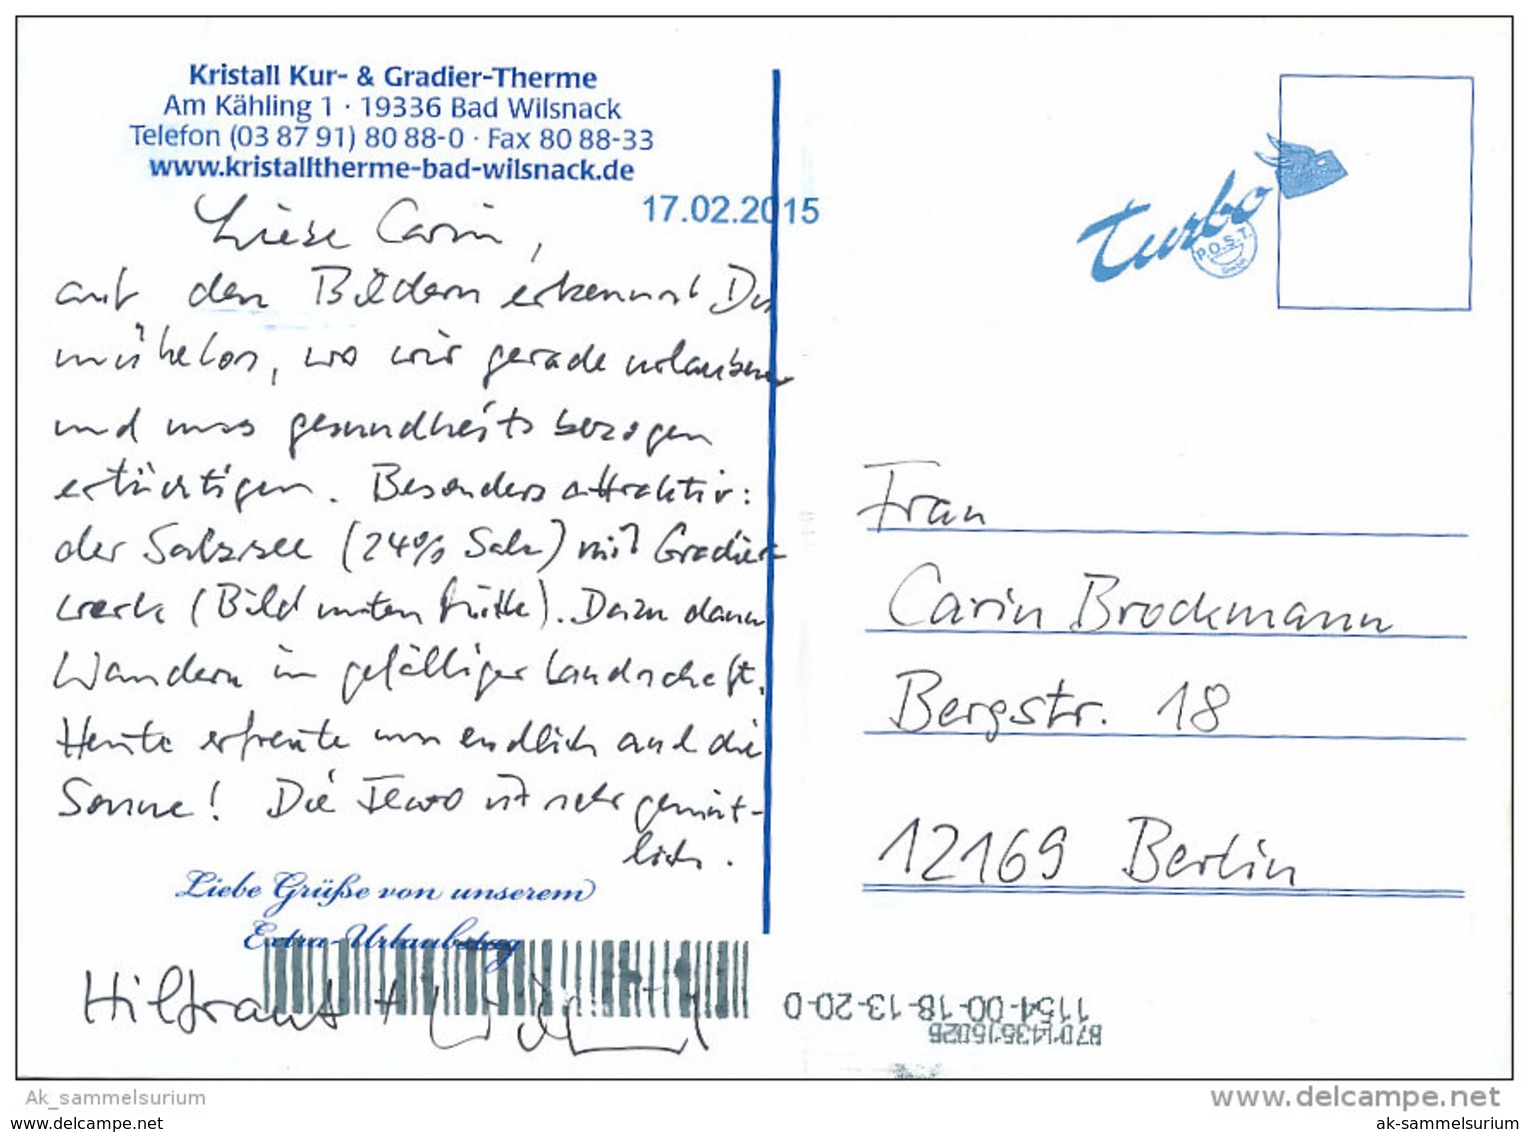 Kristall Kur- & Gradier-Therme
Am Kähling 1 · 19336 Bad Wilsnack
Telefon (03 87 91) 80 88-0 · Fax 80 88-33
www.kristalltherme-bad-wilsnack.de
17.02.2015
Liebe Carin,
auf den Bildern erkennst Du
mühelos, wo wir gerade urlauben
und uns gesundheitsbezogen
ertüchtigen. Besonders attraktiv:
der Salzsee (24% Salz) mit Gradier-
werk (Bild unten Mitte). Dazu dann
Wandern in gefälliger Landschaft.
Heute erfreute uns endlich auch die
Sonne! Die Fewo ist sehr gemüt-
lich.
Liebe Grüße von unserem
Extra-Urlaubstag
Hiltraut +
turbo
P.O.S.T.
GmbH
Frau
Carin Brockmann
Bergstr. 18
12169 Berlin
1154-00-18-13-20-0
Ak_sammelsurium
www.delcampe.net
www.ak-sammelsurium.de
ak-sammelsurium